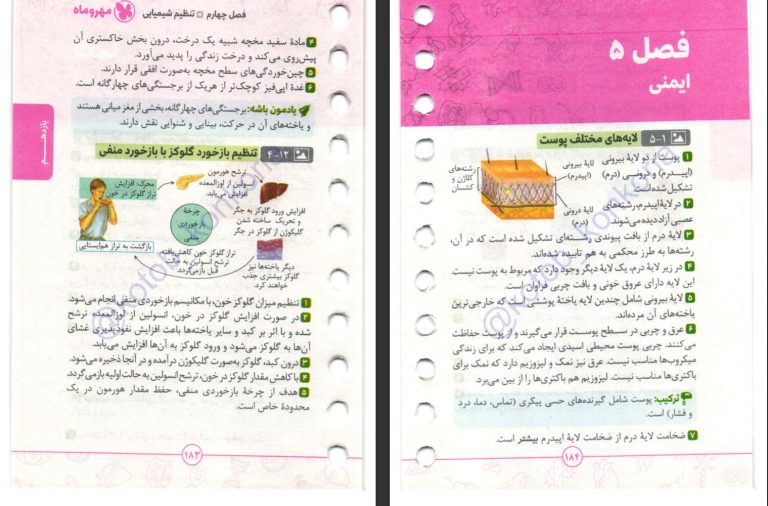 فصل چهارم • تنظیم شیمیایی مهروماه
۴ مادهٔ سفید مخچه شبیه یک درخت، درون بخش خاکستری آن
پیش‌روی می‌کند و درخت زندگی را پدید می‌آورد.
۵ چین‌خوردگی‌های سطح مخچه به‌صورت افقی قرار دارند.
۶ غدهٔ اپی‌فیز کوچک‌تر از هریک از برجستگی‌های چهارگانه است.
یادمون باشه: برجستگی‌های چهارگانه، بخشی از مغز میانی هستند
و یاخته‌های آن در حرکت، بینایی و شنوایی نقش دارند.
یازدهم
۴-۱۲ تنظیم بازخورد گلوکز با بازخورد منفی
محرک: افزایش
تراز گلوکز در خون
ترشح هورمون
انسولین از لوزالمعده
افزایش می‌یابد.
افزایش ورود گلوکز به جگر
و تحریک ساخته شدن
گلیکوژن از گلوکز در جگر
چرخهٔ
بازخوردی
منفی
بازگشت به تراز هم‌ایستایی
تراز گلوکز خون کاهش‌یافته،
ترشح انسولین به حالت
قبل بازمی‌گردد.
دیگر یاخته‌ها نیز
گلوکز بیشتری جذب
خواهند کرد.
۱ تنظیم میزان گلوکز خون، با مکانیسم بازخوردی منفی انجام می‌شود.
۲ در صورت افزایش گلوکز در خون، انسولین از لوزالمعده ترشح
شده و با اثر بر کبد و سایر یاخته‌ها باعث افزایش نفوذپذیری غشای
آن‌ها به گلوکز می‌شود و ورود گلوکز به آن‌ها افزایش می‌یابد.
۳ درون کبد، گلوکز به‌صورت گلیکوژن درآمده و در آنجا ذخیره می‌شود.
۴ با کاهش مقدار گلوکز در خون، ترشح انسولین به حالت اولیه بازمی‌گردد.
۵ هدف از چرخهٔ بازخوردی منفی، حفظ مقدار هورمون در یک
محدودهٔ خاص است.
۱۸۳
فصل ۵
ایمنی
۵-۱ لایه‌های مختلف پوست
۱ پوست از دو لایهٔ بیرونی
(اپیـدرم) و درونـی (درم)
تشکیل شده است.
۲ در لایهٔ اپیدرم، رشته‌های
عصبی آزاد دیده می‌شوند.
لایهٔ بیرونی
(اپیدرم)
لایهٔ درونی
(درم)
رشته‌های
کلاژن و
کشسان
۳ لایهٔ درم از بافت پیوندی رشته‌ای تشکیل شده است که در آن،
رشته‌ها به طرز محکمی به هم تابیده شده‌اند.
۴ در زیر لایهٔ درم، یک لایهٔ دیگر وجود دارد که مربوط به پوست نیست.
این لایه دارای عروق خونی و بافت چربی فراوان است.
۵ لایهٔ بیرونی شامل چندین لایه یاختهٔ پوششی است که خارجی‌ترین
یاخته‌های آن مرده‌اند.
۶ عرق و چربی در سطح پوست قرار می‌گیرند و از پوست حفاظت
می‌کنند. چربی پوست محیطی اسیدی ایجاد می‌کند که برای زندگی
میکروب‌ها مناسب نیست. عرق نیز نمک و لیزوزیم دارد که نمک برای
باکتری‌ها مناسب نیست. لیزوزیم هم باکتری‌ها را از بین می‌برد.
ترکیب: پوست شامل گیرنده‌های حسی پیکری (تماس، دما، درد
و فشار) است.
۷ ضخامت لایهٔ درم از ضخامت لایهٔ اپیدرم بیشتر است.
۱۸۴